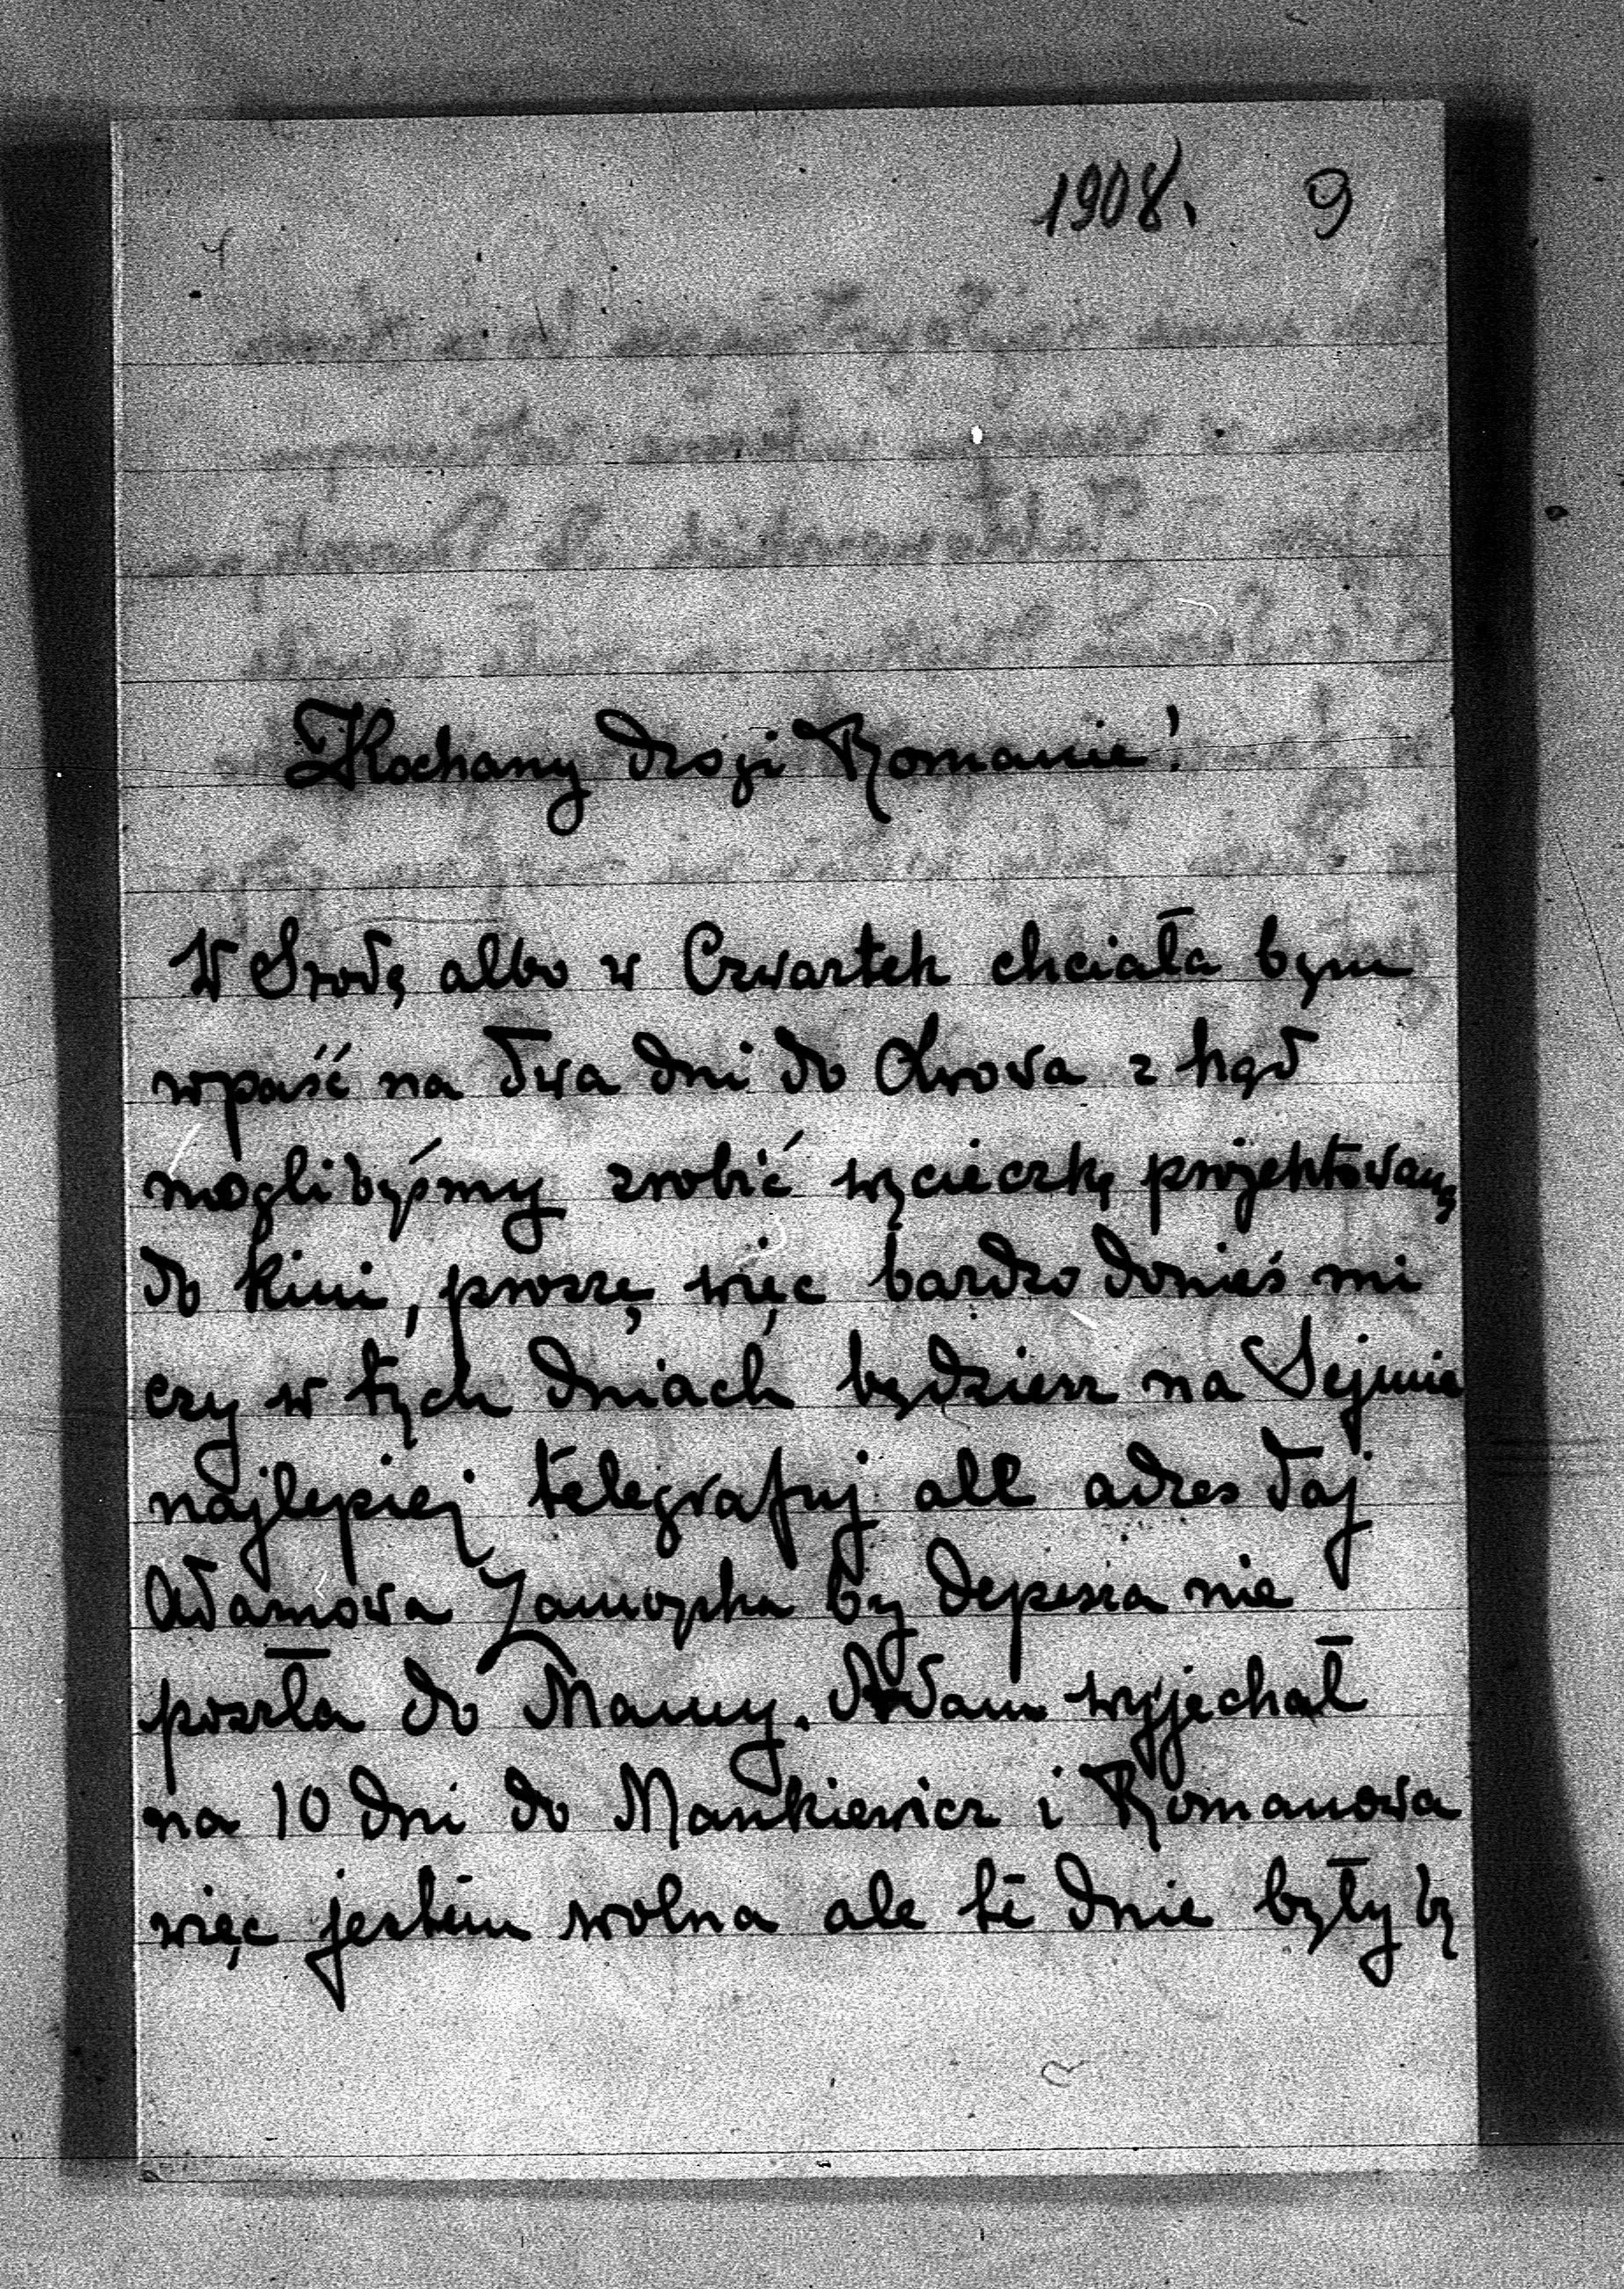 1908. 9
Kochany drogi Romanie!
W Srodę albo w Czwartek chciała bym
wpaść na dwa dni do Lwowa z kąd
moglibyśmy zrobić wycieczkę projektowaną
do kini, proszę więc bardzo donieś mi
czy w tych dniach będziesz na Sejmie
najlepiej telegrafuj ale adres daj
Adamowa Zamoyska by depesza nie
poszła do Mamy. Adam wyjechał
na 10 dni do Mankiewicz i Romanowa
więc jestem wolna ale te dnie były by